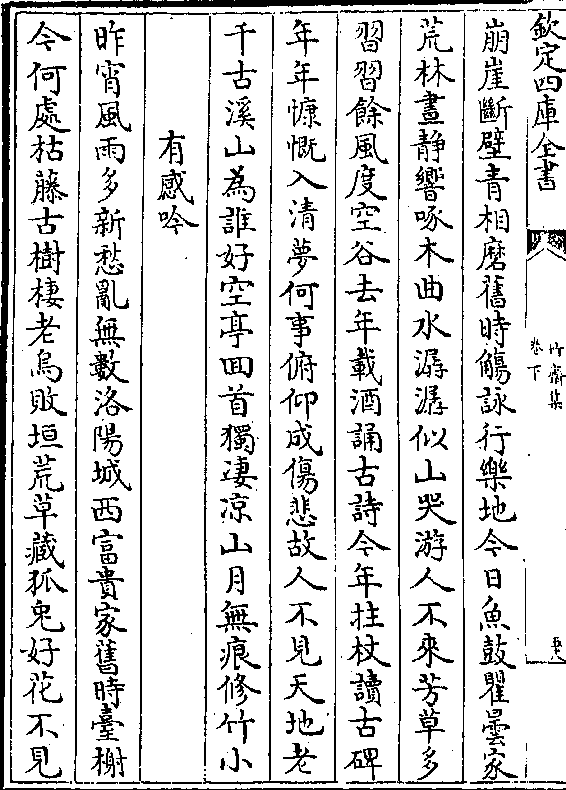 欽定四庫全書
竹齋集
卷下
崩崖斷壁青相磨舊時觴詠行樂地今日魚鼓瞿曇家
荒林晝静響啄木曲水潺潺似山哭游人不來芳草多
習習餘風度空谷去年載酒誦古詩今年拄杖讀古碑
年年慷慨入清夢何事俯仰成傷悲故人不見天地老
千古溪山為誰好空亭回首獨凄凉山月無痕修竹小
有感吟
昨宵風雨多新愁亂無數洛陽城西富貴家舊時臺榭
今何處枯藤古樹棲老烏敗垣荒草藏狐兎好花不見